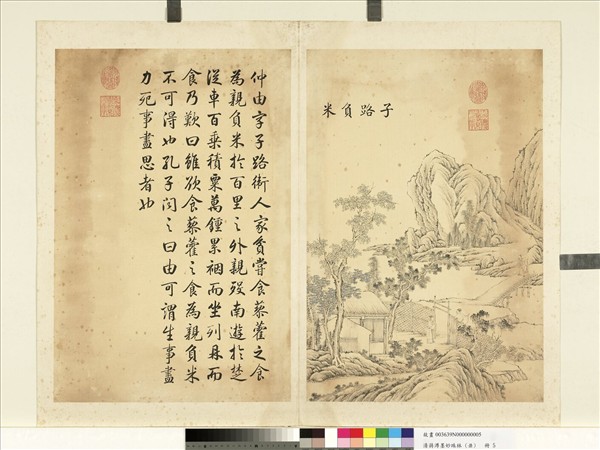 子路負米
仲由字子路衛人家貧嘗食藜藿之食
為親負米於百里之外親歿南遊於楚
從車百乘積粟萬鍾累裀而坐列鼎而
食乃歎曰雖欲食藜藿之食為親負米
不可得也孔子聞之曰由可謂生事盡
力死事盡思者也
故畫 003639N000000005